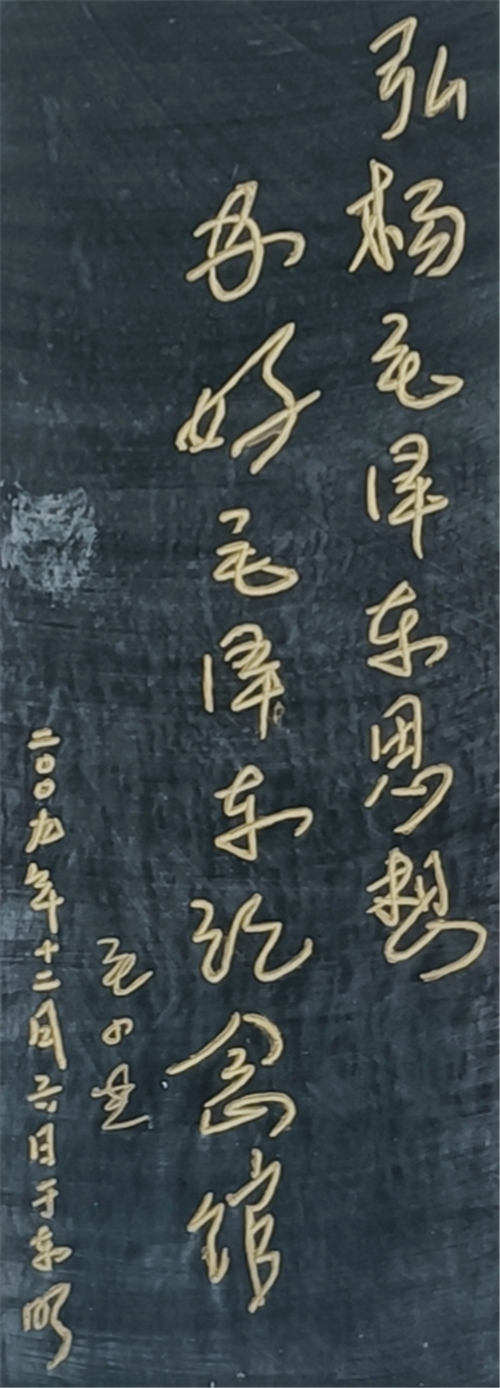 弘杨毛泽东思想
办好毛泽东纪念馆
毛小青
二00九年十二月六日于东明